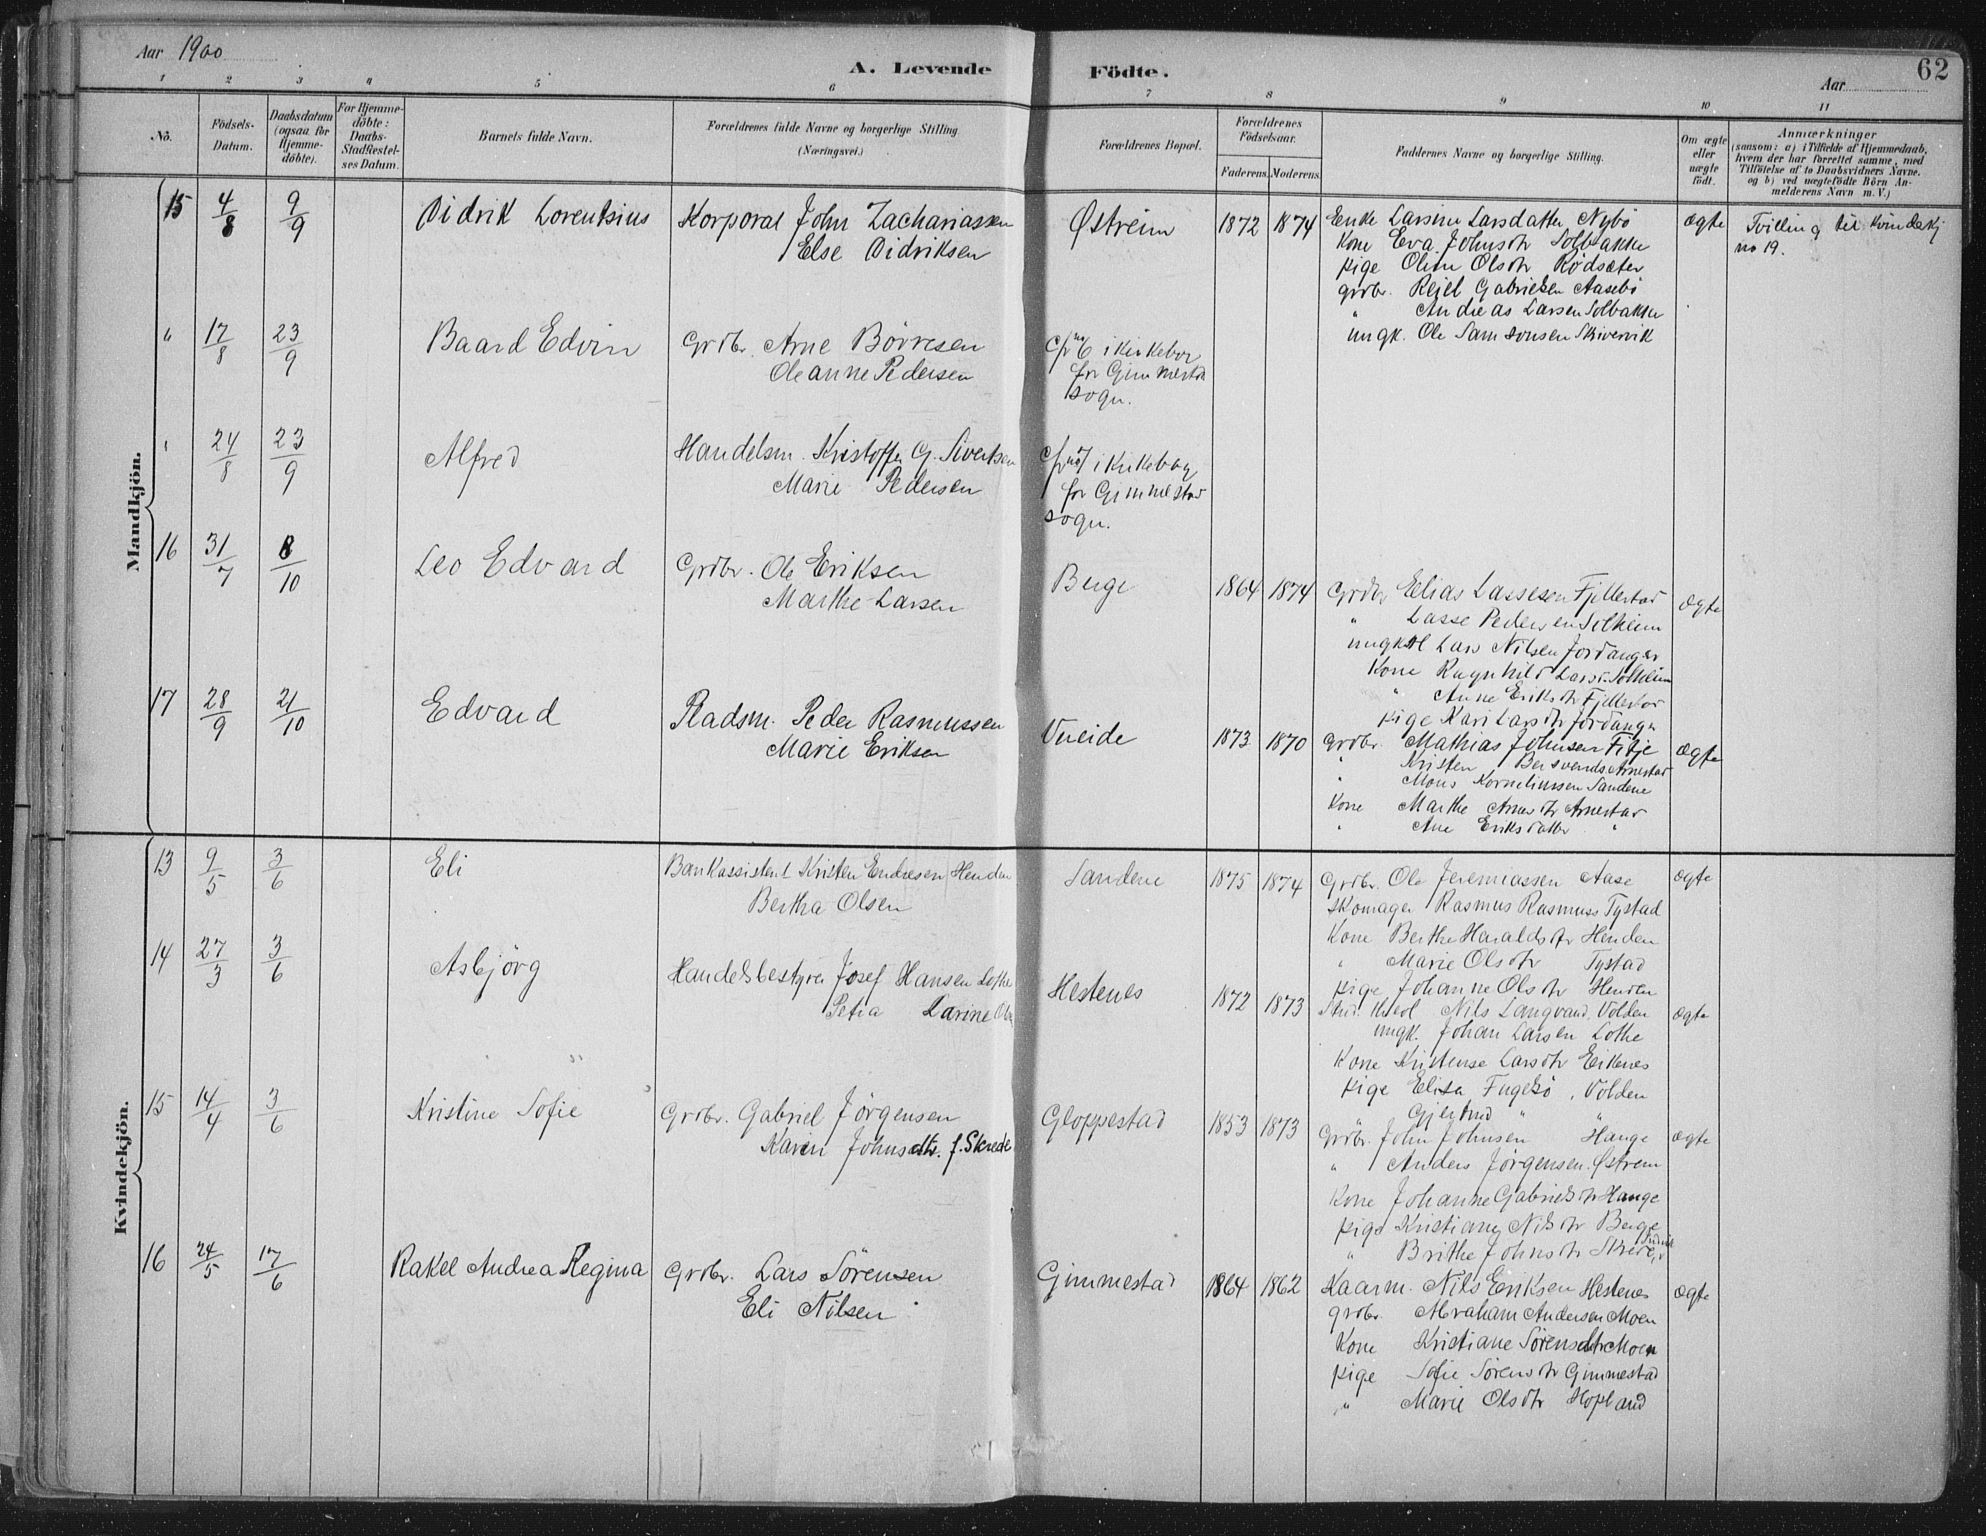 Aar 1900
A. Levende Födte.
Aar
62
1 2 3 4 5 6 7 8 9 10 11
No.
Födsels-Datum.
Daabsdatum (ogsaa for Hjemme-döbte).
For Hjemme-döbte: Daabs-Stadfæstel-ses Datum.
Barnets fulde Navn.
Forældrenes fulde Navne og borgerlige Stilling (Næringsvei.)
Forældrenes Bopæl.
Forældrenes Födselsaar.
Faderens. Moderens.
Faddernes Navne og borgerlige Stilling.
Om ægte eller uægte födt.
Anmærkninger
(saasom: a) i Tilfælde af Hjemmedaab,
hvem der har forrettet samme, med
Tilföielse af to Daabsvidners Navne.
og b) ved uægtefödte Börn An-
melderens Navn m. V.)
Mandkjön.
15 4/8 9/9 Didrik Lorentsius Korporal John Zachariassen Østreim 1872 1874 Enke Larsine Larsdatter Nybö ægte Tvilling til kvindekj
Else Didriksen Kone Eva Johnsdtr Solbakke no 19.
pige Oline Olsdtr Rødsæter
grdbr. Reiel Gabrielsen Aasebö
" Andreas Larsen Solbakke
ungk. Ole Samsonsen Skivervik
" 17/8 23/9 Baard Edvin Grdbr. Arne Börresen cfr no 6 i kirkebog
Oleanne Pedersen for Gimmestad
sogn.
" 24/8 23/9 Alfred Handelsm. Kristoffer G. Sivertsen cfr no 7 i kirkebog
Marie Pedersen for Gimmestad
sogn.
16 31/7 8/10 Leo Edvard Grdbr. Ole Eriksen Berge 1864 1874 Grdbr Elias Lassesen Fjellestad ægte
Marthe Larsen " Lasse Pedersen Solheim
ungkl Lars Nilsen Jordanger
Kone Ragnhild Larsd. Solheim
" Anne Eriksdtr Fjellestad
pige Kari Larsdtr Jordanger
17 28/9 21/10 Edvard Pladsm. Peder Rasmussen Vereide 1873 1870 grdbr. Mathias Johnsen Fitje ægte
Marie Eriksen " Kristen Bersvends Arnestad
" Mons Korneliussen Sandene
Kone Marthe Arnesdtr Arnestad
" Ane Eriksdatter "
Kvindekjön.
13 9/5 3/6 Eli Bankassistent Kristen Endresen Henden Sandene 1875 1874 Grdbr. Ole Jeremiassen Aase ægte
Bertha Olsen Skomager Rasmus Rasmuss Tystad
Kone Berthe Haraldsdtr Henden
" Marie Olsdtr Tystad
pige Johanne Olsdtr Henden
14 27/3 3/6 Asbjörg Handelsbestyrer Josef Hansen Lothe Hestenes 1872 1873 Stud. theol Nils Langvand. Volden ægte
Petra Larine ungk. Johan Larsen Lothe
Kone Kristense Larsdtr Eikenes
pige Elisa Fugelsö, Volden
" Gjertrud " "
15 14/4 3/6 Kristine Sofie Grdbr. Gabriel Jörgensen Gloppestad 1853 1873 Grdbr. John Johnsen Hauge ægte
Karen Johnsdtr. f. Skrede " Anders Jörgensen Østrem
Kone Johanne Gabrielsdtr Hauge
pige Kristiane Nilsdtr Berge
" Brithe Johnsdtr Skrede,
16 24/5 17/6 Rakel Andrea Regina Grdbr. Lars Sörensen Gimmestad 1864 1862 Kaarm. Nils Eriksen Hestenes ægte
Eli Nilsen grdbr. Abraham Andersen Moen
Kone Kristiane Sörensdtr Moen
pige Sofie Sörensdtr Gimmestad
" Marie Olsdtr Hopland